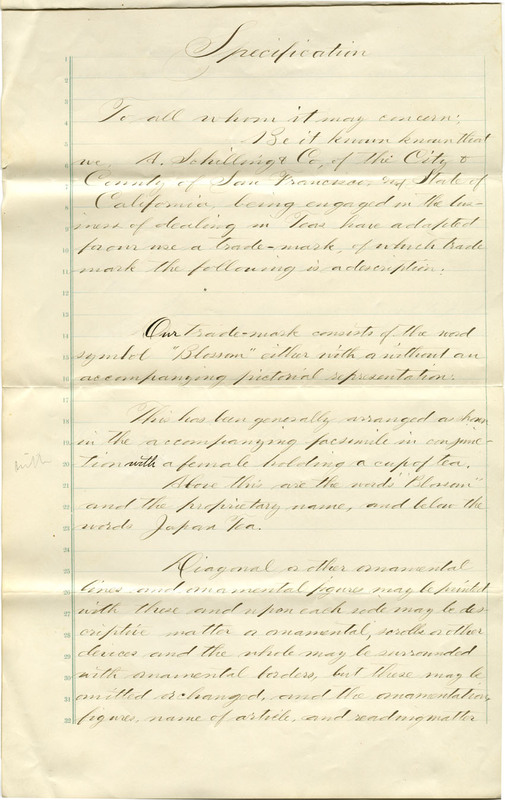 Specification
To all whom it may concern;
Be it known known that
we, A. Schilling & Co, of the City &
County of San Francisco, and State of
California, being engaged in the bus-
iness of dealing in Teas have adapted
for our use a trade-mark, of which trade
mark the following is a description.
Our trade-mark consists of the word
symbol "Blossom" either with or without an
accompanying pictorial representation.
This has been generally arranged as shown
in the accompanying facsimile in conjunc-
with
tion with a female holding a cup of tea.
Above this are the words "Blossom"
and the proprietary name, and below the
words Japan Tea.
Diagonal or other ornamental
lines and ornamental figures may be printed
with these and upon each side may be des-
criptive matter or ornamental, scrolls or other
devices and the whole may be surrounded
with ornamental borders, but these may be
omitted or changed, and the ornamentation,
figures, name of article, and reading matter
1
2
3
4
5
6
7
8
9
10
11
12
13
14
15
16
17
18
19
20
21
22
23
24
25
26
27
28
29
30
31
32